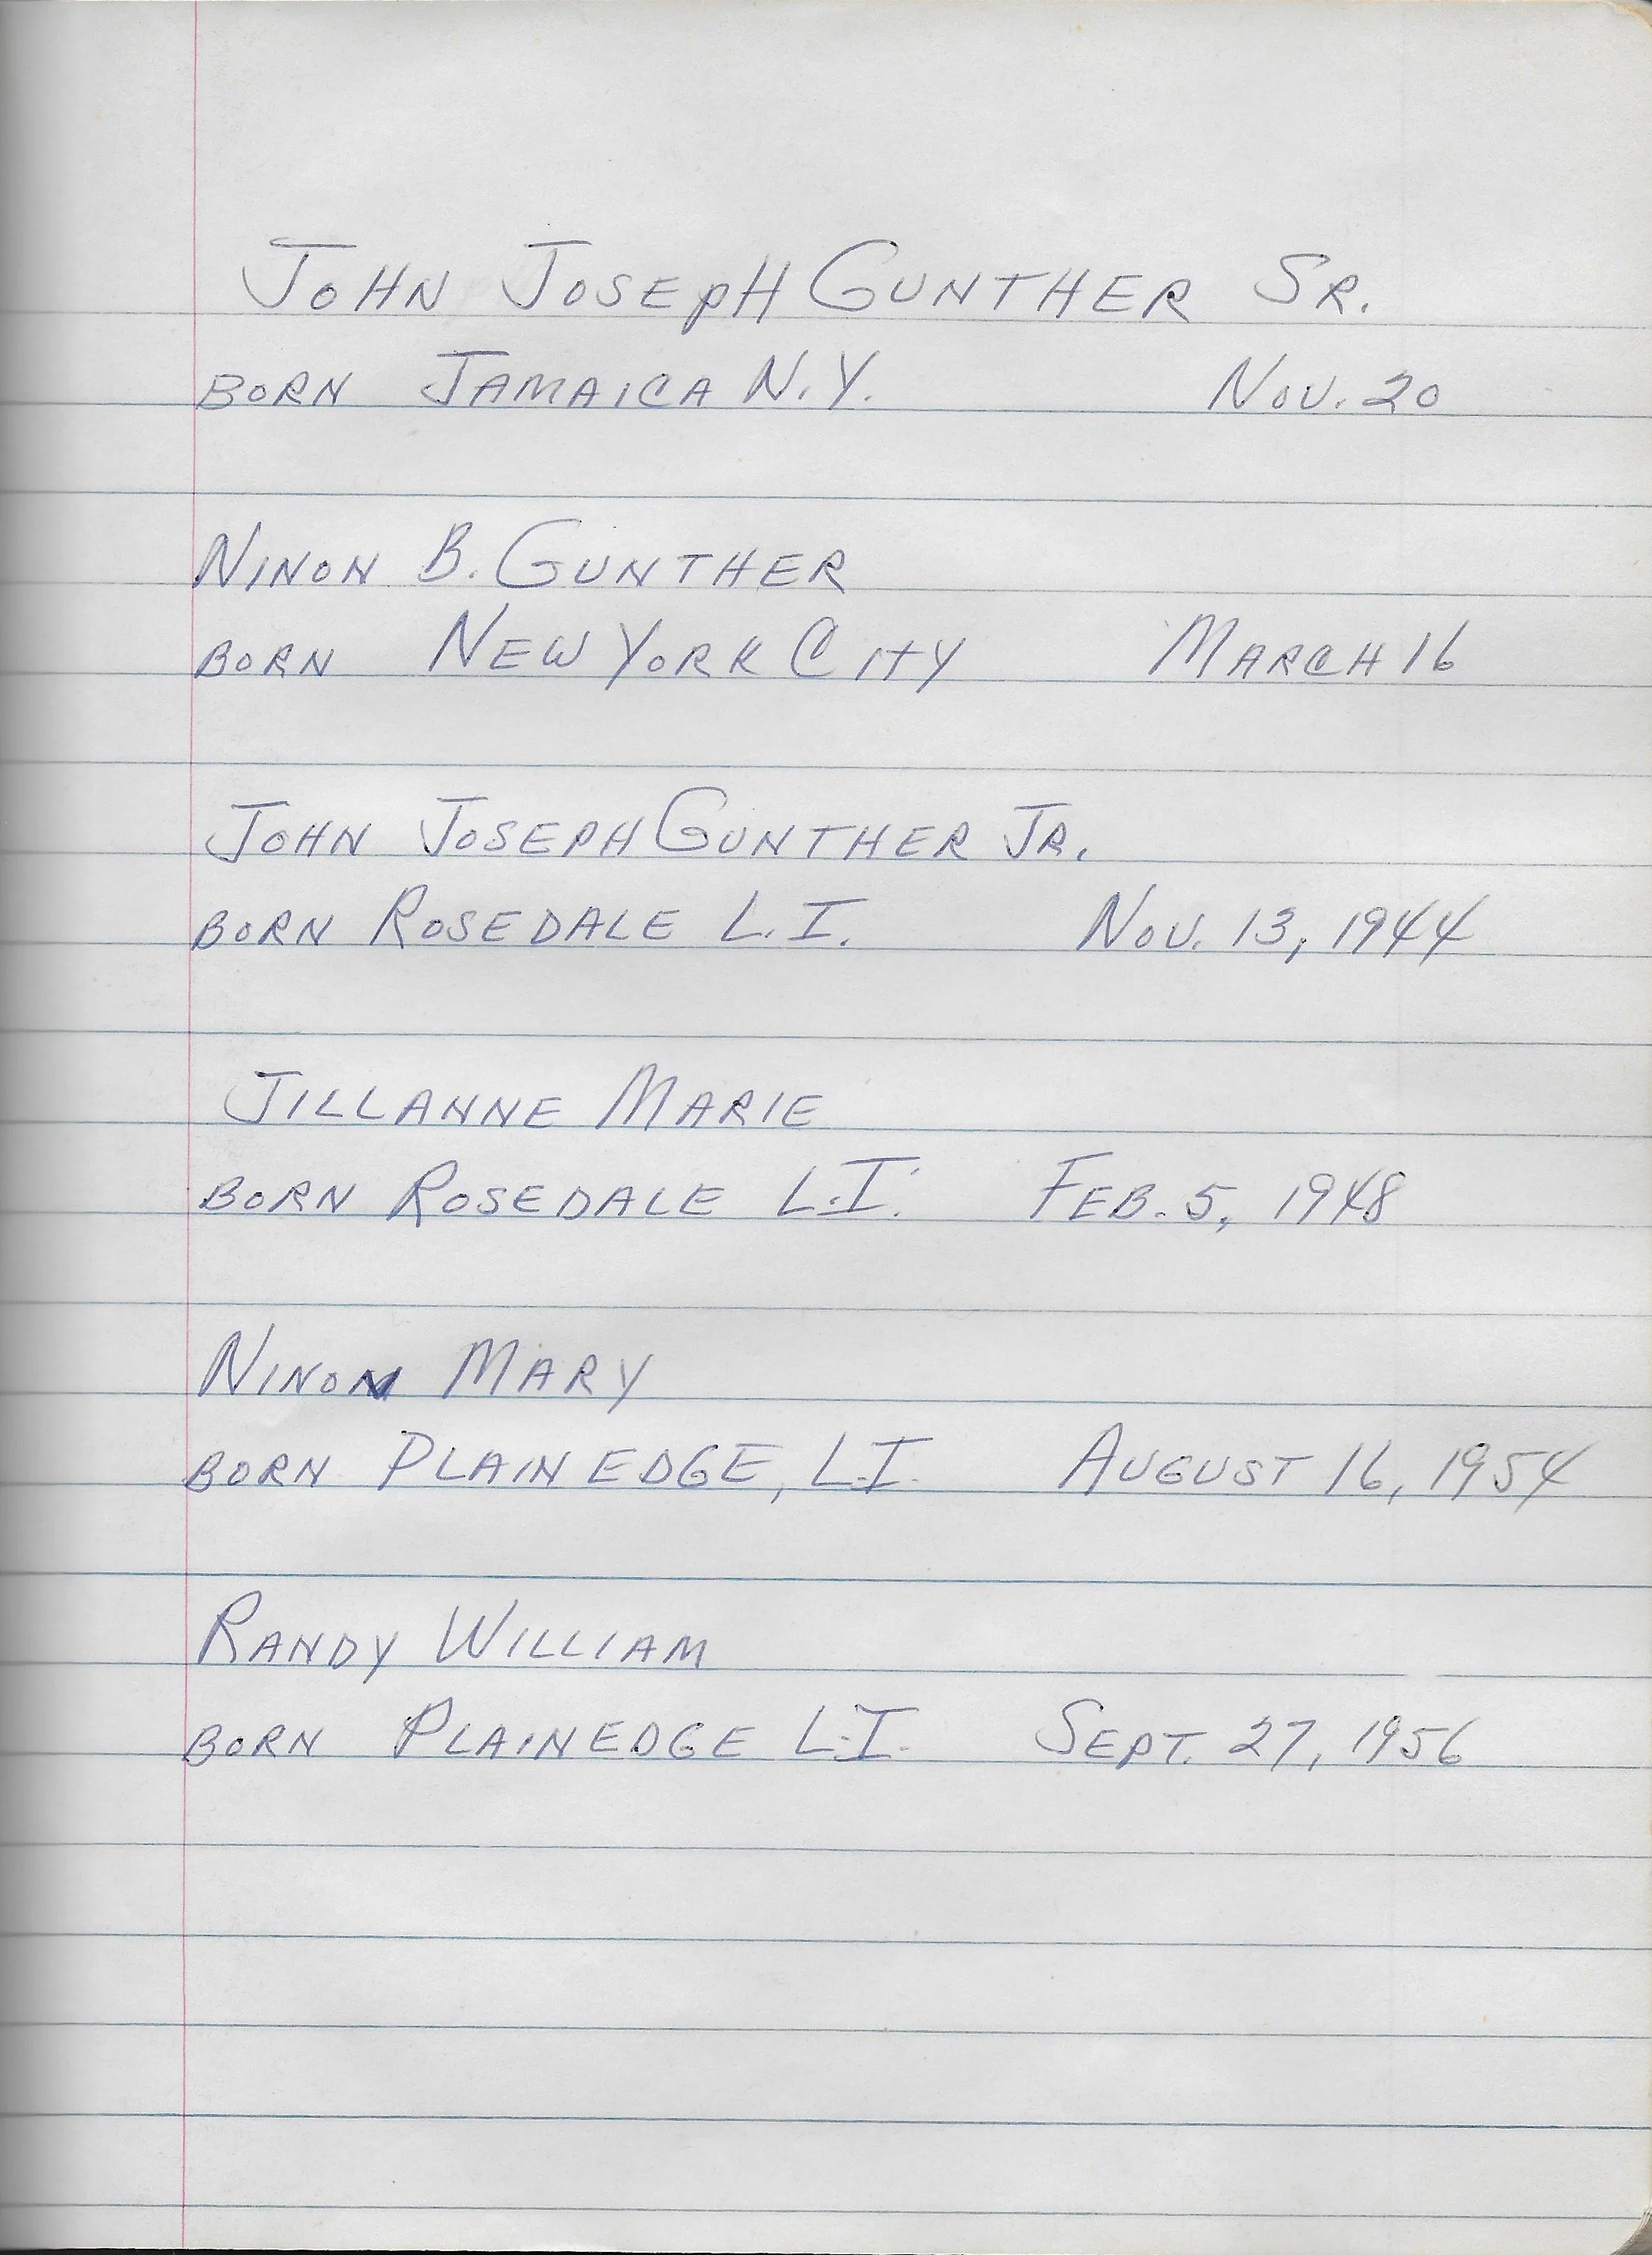 John Joseph Gunther Sr.
Born Jamaica N.Y. Nov. 20
Ninon B. Gunther
Born New York City March 16
John Joseph Gunther Jr.
Born Rosedale L.I. Nov. 13, 1944
Jillanne Marie
Born Rosedale L.I. Feb. 5, 1948
Ninon Mary
Born Plainedge, L.I. August 16, 1954
Randy William
Born Plainedge L.I. Sept. 27, 1956